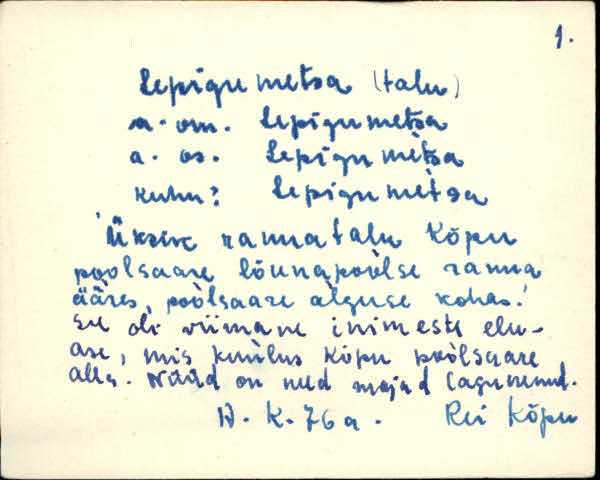 1.
Lepigumetsa (talu)
a. om. Lepigumetsa
a. os. Lepigu mètsa
kuhu? Lepigu mètsa
Üksik rannatalu Kõpu
poolsaare lõunapoolse ranna
ääres, poolsaare alguse kohas.
See oli viimane inimeste elu-
ase, mis kuulus Kõpu poolsaare
alla. Nüüd on need majad lagunenud.
H. K. 76 a. Rei Kõpu